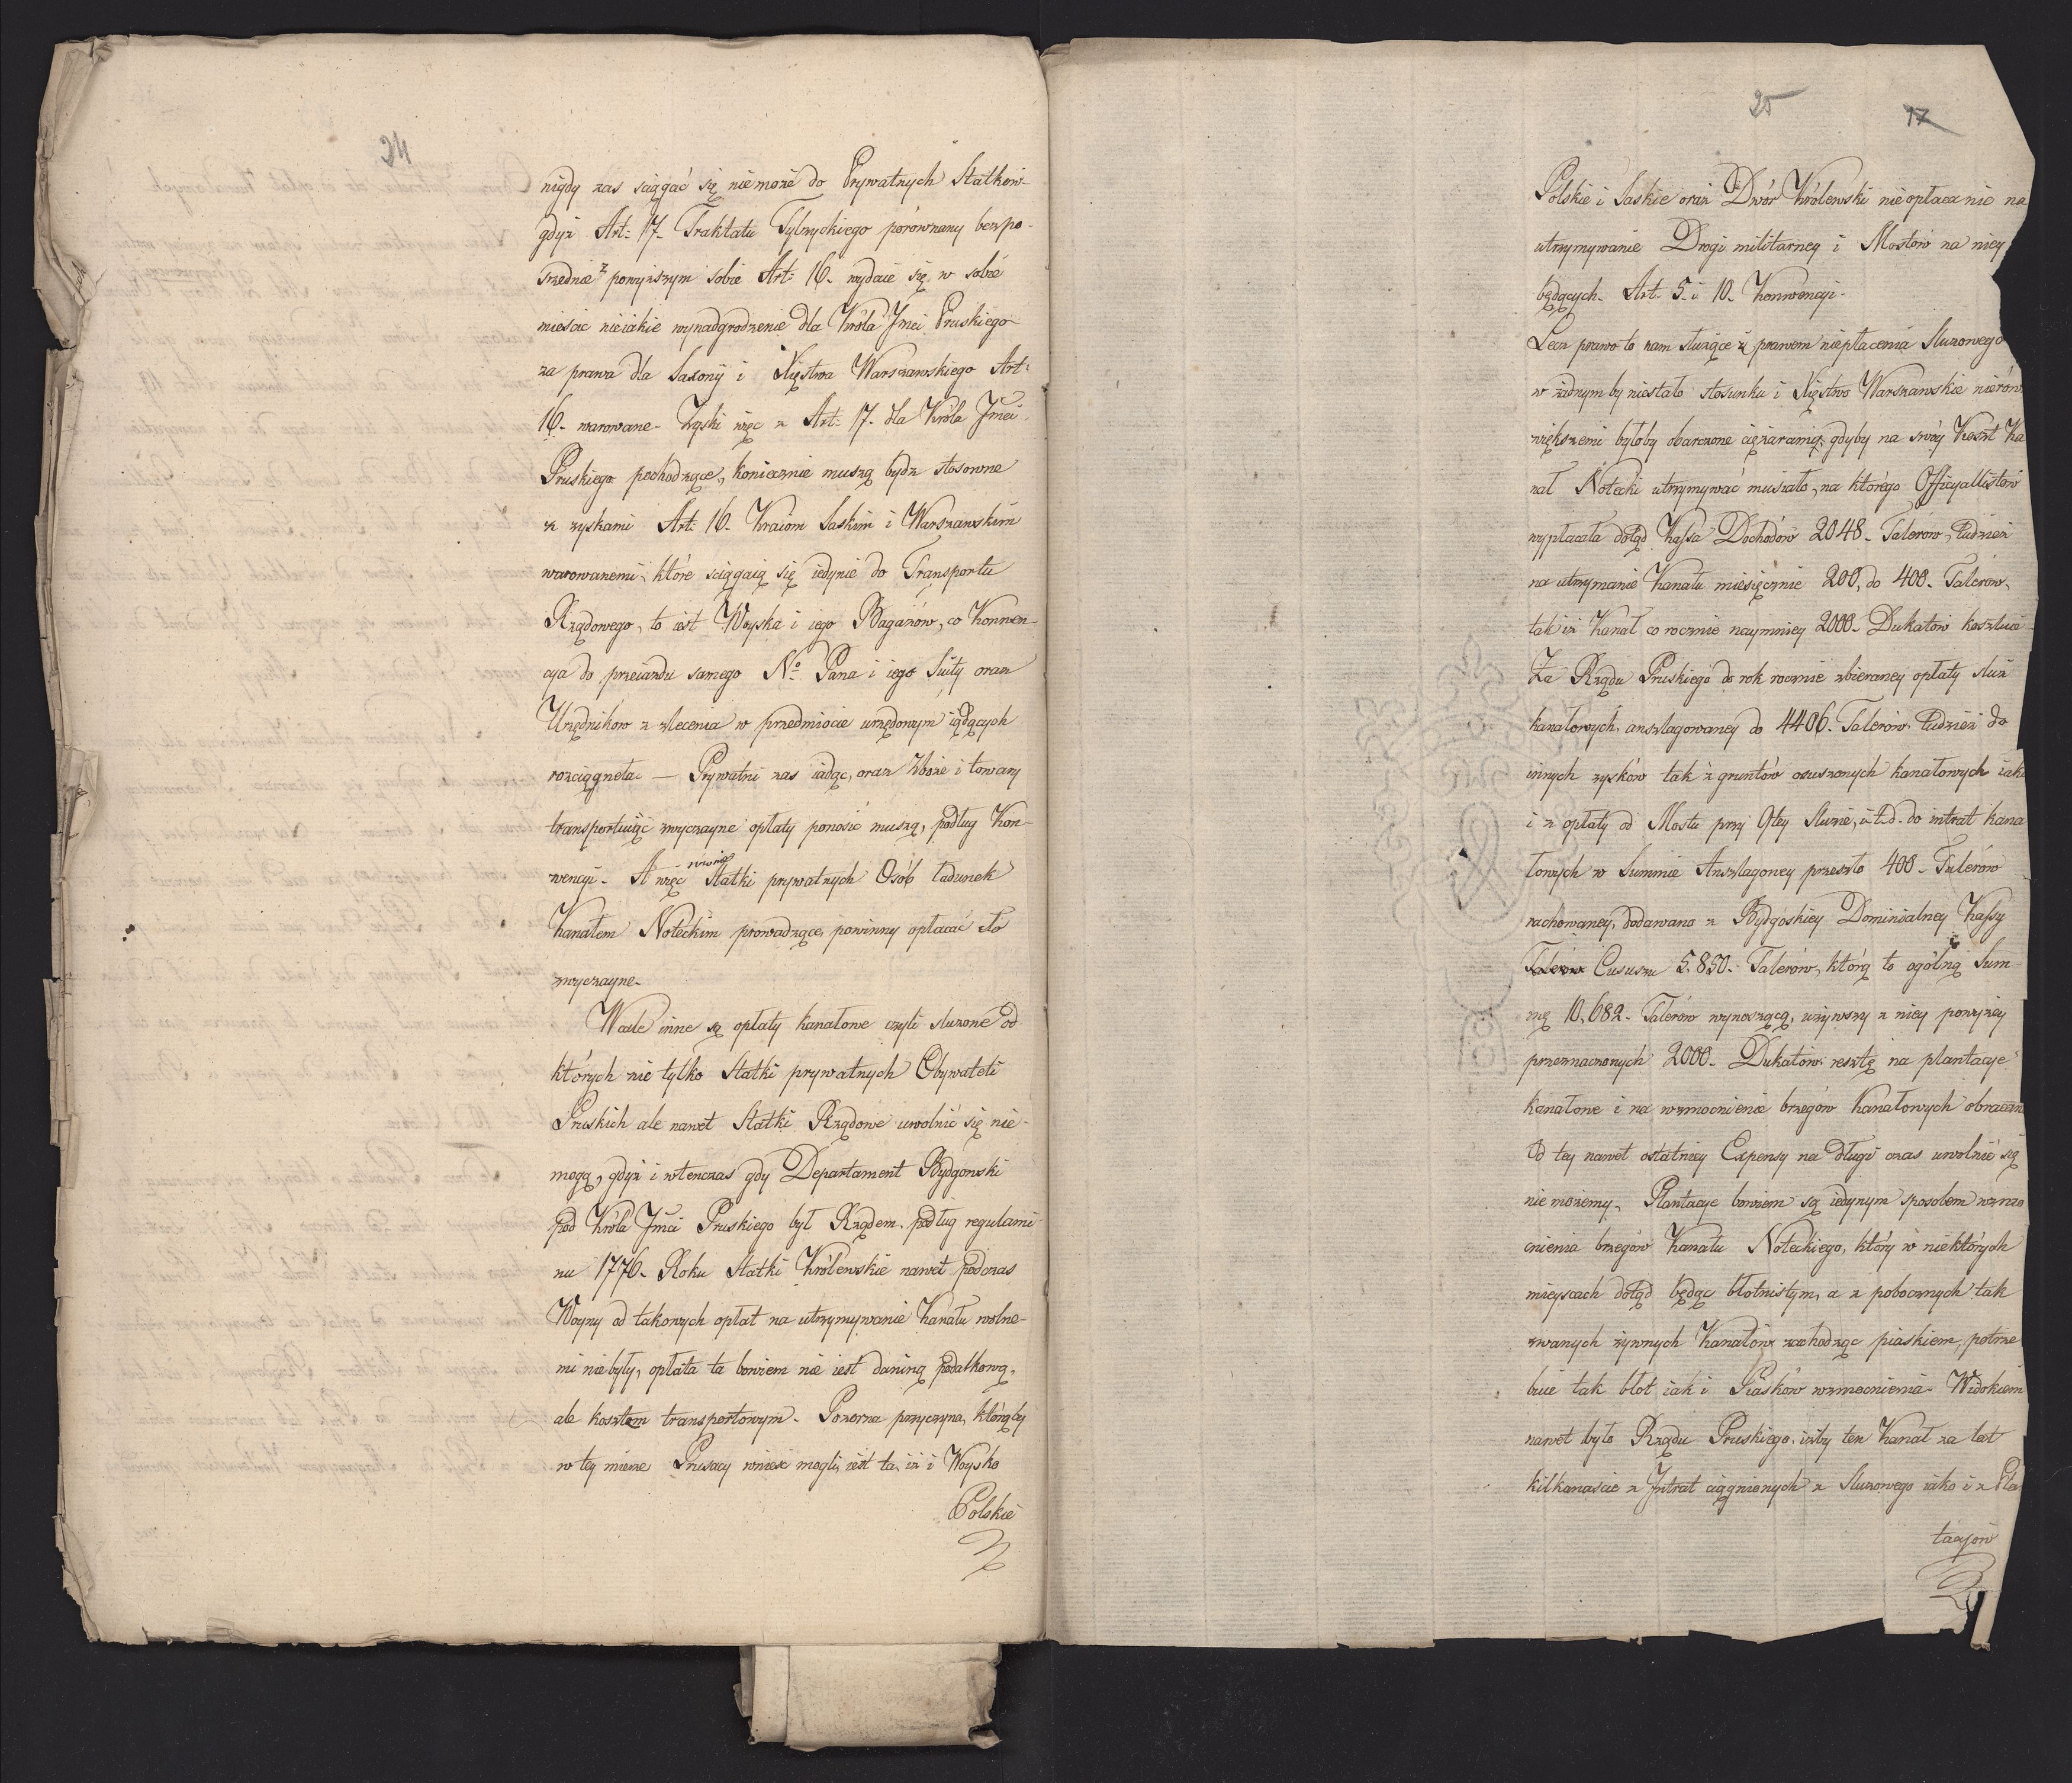 24
nigdy zas sciągać się niemoże do Prywatnych Statkow
gdyż Art: 17. Traktatu Tylzyckiego porównany bezpo-
srednie z powyższym sobie Art: 16. wydaie się w sobie
miescic nieiakie wynadgrodzenie dla Króla Jmci Pruskiego
za prawa dla Saxonij i Xięstwa Warszawskiego Art:
16. warowane. Zyski więc z Art: 17. dla Króla Jmci
Pruskiego pochodzące, koniecznie muszą bydz stosowne
z zyskami Art: 16. Kraiom Saskim i Warszawskim
warowanemi, które sciągaią się iedynie do Transportu
Rządowego, to iest Woyska i iego Bagażów, co Konwen-
cya do przeiazdu samego No Pana i iego Suity oraz
Urzędników z zlecenia w przedmiocie urzędowym iądących
rozciągneła — Prywatni zas iadąc, oraz Zboże i towary
transportuiąc zwyczayne opłaty ponosić muszą, podług Kon-
wencyi. A więc równie Statki prywatnych Osób ładunek
Kanałem Noteckim prowadzące, powinny opłacać cło
zwyczayne.
Wcale inne są opłaty kanałowe czyli sluzowe od
których nie tylko Statki prywatnych Obywateli
Pruskich ale nawet Statki Rządowe uwolnić się nie-
mogą, gdyż i wtenczas gdy Departament Bydgoski
pod Króla Jmci Pruskiego był Rządem, podług regulami-
nu 1776. Roku Statki Królewskie nawet podczas
Woyny od takowych opłat na utrzymywanie Kanału wolne-
mi niebyły, opłata ta bowiem nie iest daniną podatkową,
ale kosztem transportowym. Pozorna przyczyna, którąby
w tey mierze Prusacy wniesc mogli, iest ta, iż i Woysko
Polskie
25
17
Polskie i Saskie oraz Dwór Królewski nieopłaca nic na
utrzymywanie Drogi militarney i Mostów na niey
będących. Art. 5. i 10. Konwencyi.
Lecz prawo to nam służące z prawem niepłacenia Sluzowego
w żadnym by niestało stosunku i Xięstwo Warszawskie nierów
większemi byłoby obarczone ciężarami, gdyby na swóy Koszt Ka
nał Notecki utrzymywać musiało, na którego Officyallistów
wypłacała dotąd Kassa Dochodów 2048. Talerów, tudzież
na utrzymanie Kanału miesięcznie 200, do 400. Talerów,
tak iż Kanał co rocznie naymniey 2000. Dukatów kosztuie
Za Rządu Pruskiego do rok rocznie zbieraney opłaty sluz
kanałowych, anszlagowaney do 4406. Talerów, tudzież do
innych zysków tak z gruntów osuszonych kanałowych iak
i z opłaty od Mostu przy 9tey Sluzie, i.t.d. do intrat kana
łowych w Summie Anszlagowey przeszło 400. Talerów
rachowaney, dodawano z Bydgoskiey Dominialney Kassy
Talerów Cususzu 5,850. Talerów, którą to ogólną Sum-
mę 10,682. Talerów wynoszącą, używszy z niey powyżey
przeznaczonych 2000. Dukatów resztę na plantacye
kanałowe i na wzmocnienie brzegów Kanałowych obracano
Od tey nawet ostatniey Expensy na długi czas uwolnić się
niemożemy. Plantacye bowiem są iedynym sposobem wzmo
cnienia brzegów Kanału Noteckiego, który w niektórych
mieyscach dotąd będąc błotnistym, a z pobocznych tak
zwanych żywnych Kanałów zachodząc piaskiem, potrze
buie tak błot iak i Piasków wzmocnienia. Widokiem
nawet było Rządu Pruskiego, iżby ten Kanał za lat
kilkanascie z Intrat ciągnionych z Sluzowego iako i z Pla
tacyów